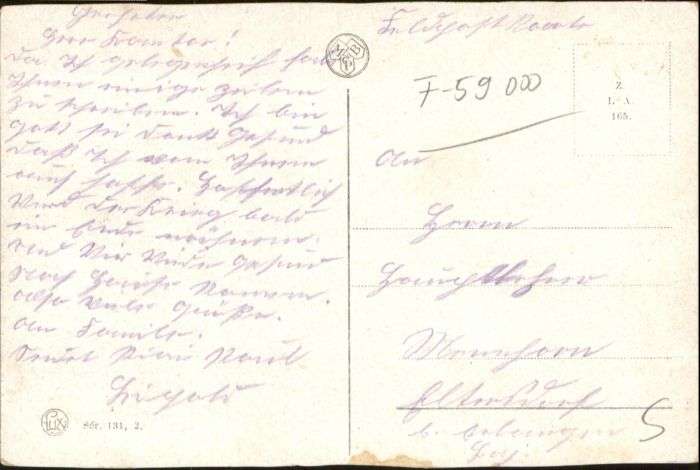 Geehrter
Herr Kantor!
Da Ich gelegenheit habe
Ihnen einige Zeilen
zu schreiben. Ich bin
gott sei dank gesund
daß Ich von Ihnen
auch hoffe. Hoffentlich
Wird der Krieg bald
ein Ende nehmen.
und Wir Wieder gesund
nach Hause kommen.
also viele Grüße.
an Familie.
Sendet
Feldpost Karte
F-59 000
Z
L. A.
165.
An
Herrn
Hauptlehrer
Eltersdorf
b. Erlangen
Bay.
S
Ser. 131, 2.